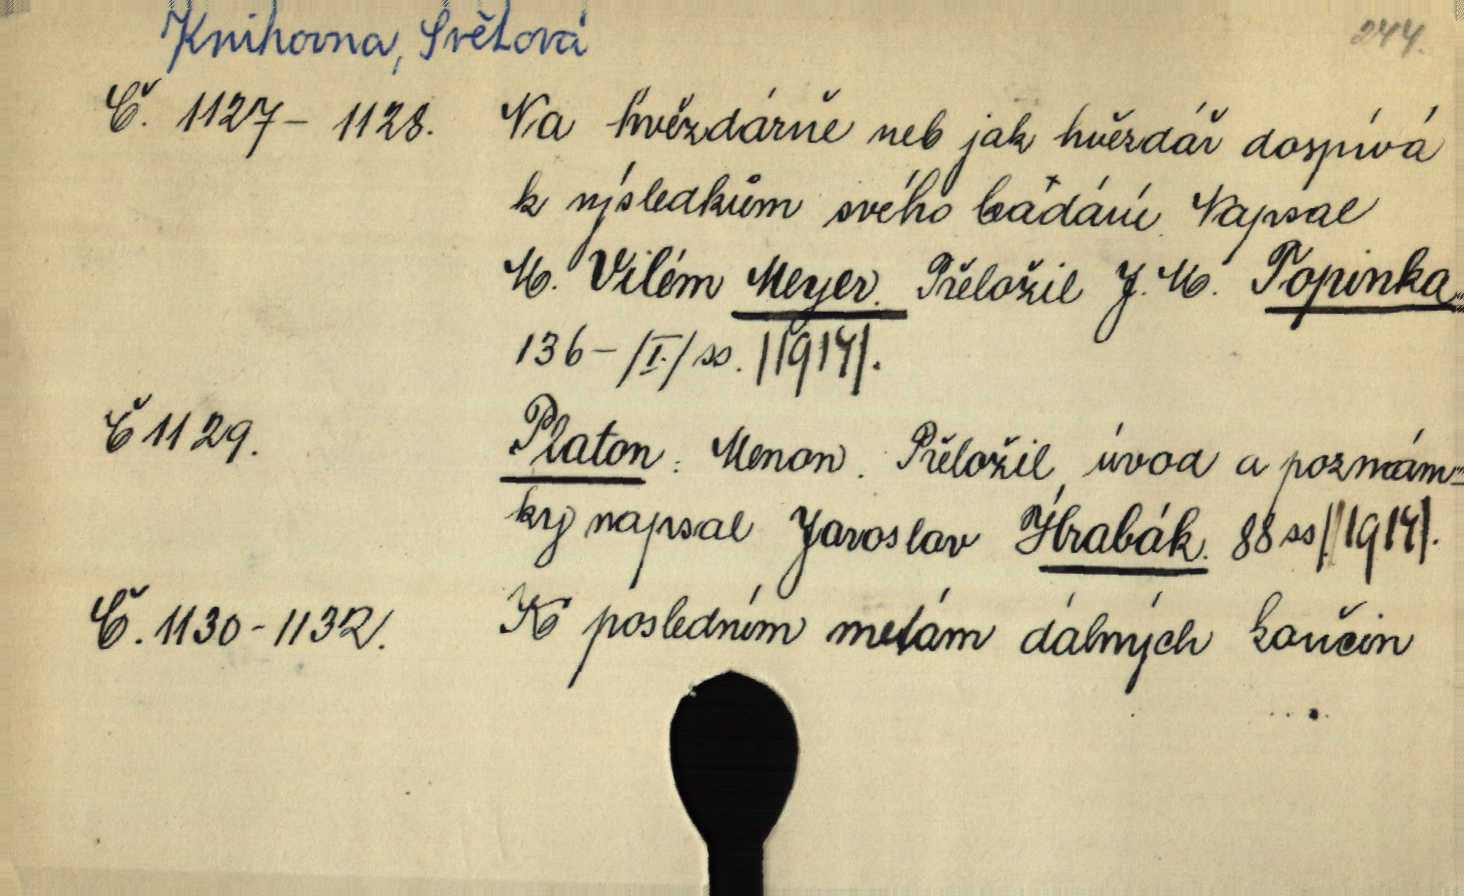 Knihovna, Světová
244.
Č. 1127 – 1128. Na hvězdárně neb jak hvězdář dospívá
k výsledkům svého bádání. Napsal
M. Vilém Meyer. Přeložil J. M. Topinka
136 – /I./ ss. /1914/.
Č 1129. Platon: Menon. Přeložil, úvod a poznám-
ky napsal Jaroslav Hrabák. 88 ss /1914/.
Č. 1130 - 1132. K posledním metám dálných končin